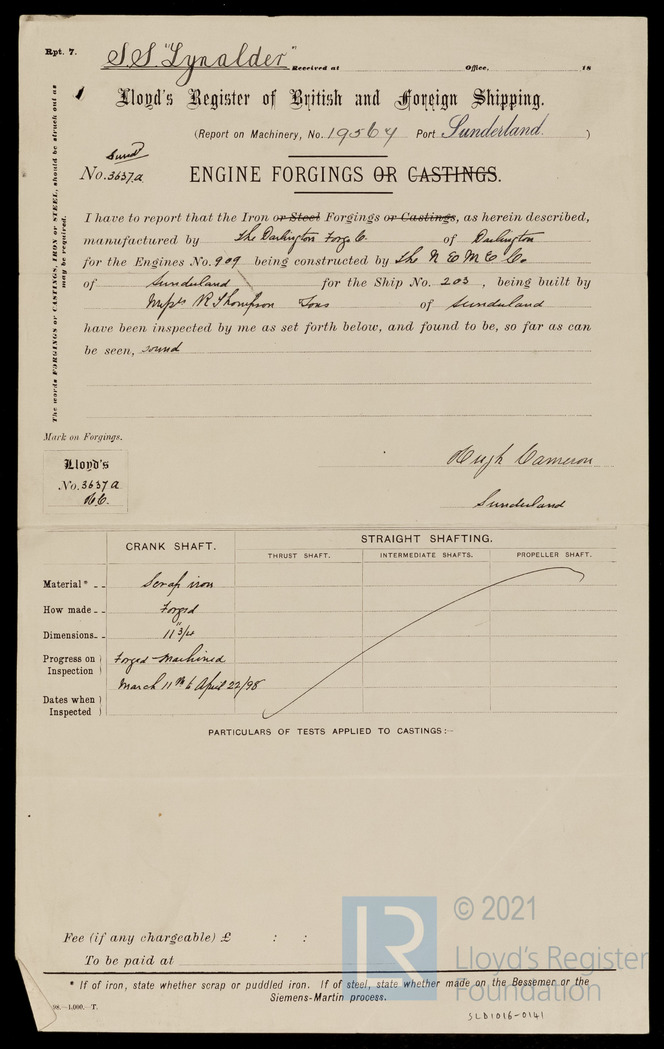 Rpt. 7.
S.S. "Lynalder"
Received at Office, 18
Lloyd's Register of British and Foreign Shipping.
(Report on Machinery, No. 19564 Port Sunderland )
Sund
No. 3637a
ENGINE FORGINGS OR CASTINGS.
The words FORGINGS or CASTINGS, IRON or STEEL, should be struck out as
may be required.
I have to report that the Iron or Steel Forgings or Castings, as herein described,
manufactured by The Darlington Forge Co. of Darlington
for the Engines No. 909 being constructed by The N E M E Co.
of Sunderland for the Ship No. 203, being built by
Messrs R Thompson Sons of Sunderland
have been inspected by me as set forth below, and found to be, so far as can
be seen, sound
Mark on Forgings.
Lloyd's
No. 3637a
H.C.
Hugh Cameron
Sunderland
CRANK SHAFT.
STRAIGHT SHAFTING.
THRUST SHAFT. INTERMEDIATE SHAFTS. PROPELLER SHAFT.
Material* Scrap iron
How made Forged
Dimensions 11 3/4"
Progress on Inspection Forged - Machined
Dates when Inspected March 11th to April 22/98
PARTICULARS OF TESTS APPLIED TO CASTINGS:-
Fee (if any chargeable) £ : :
To be paid at
* If of iron, state whether scrap or puddled iron. If of steel, state whether made on the Bessemer or the
Siemens-Martin process.
98.-1,000.-T.
LR
© 2021
Lloyd's Register
Foundation
SLD1016-0141